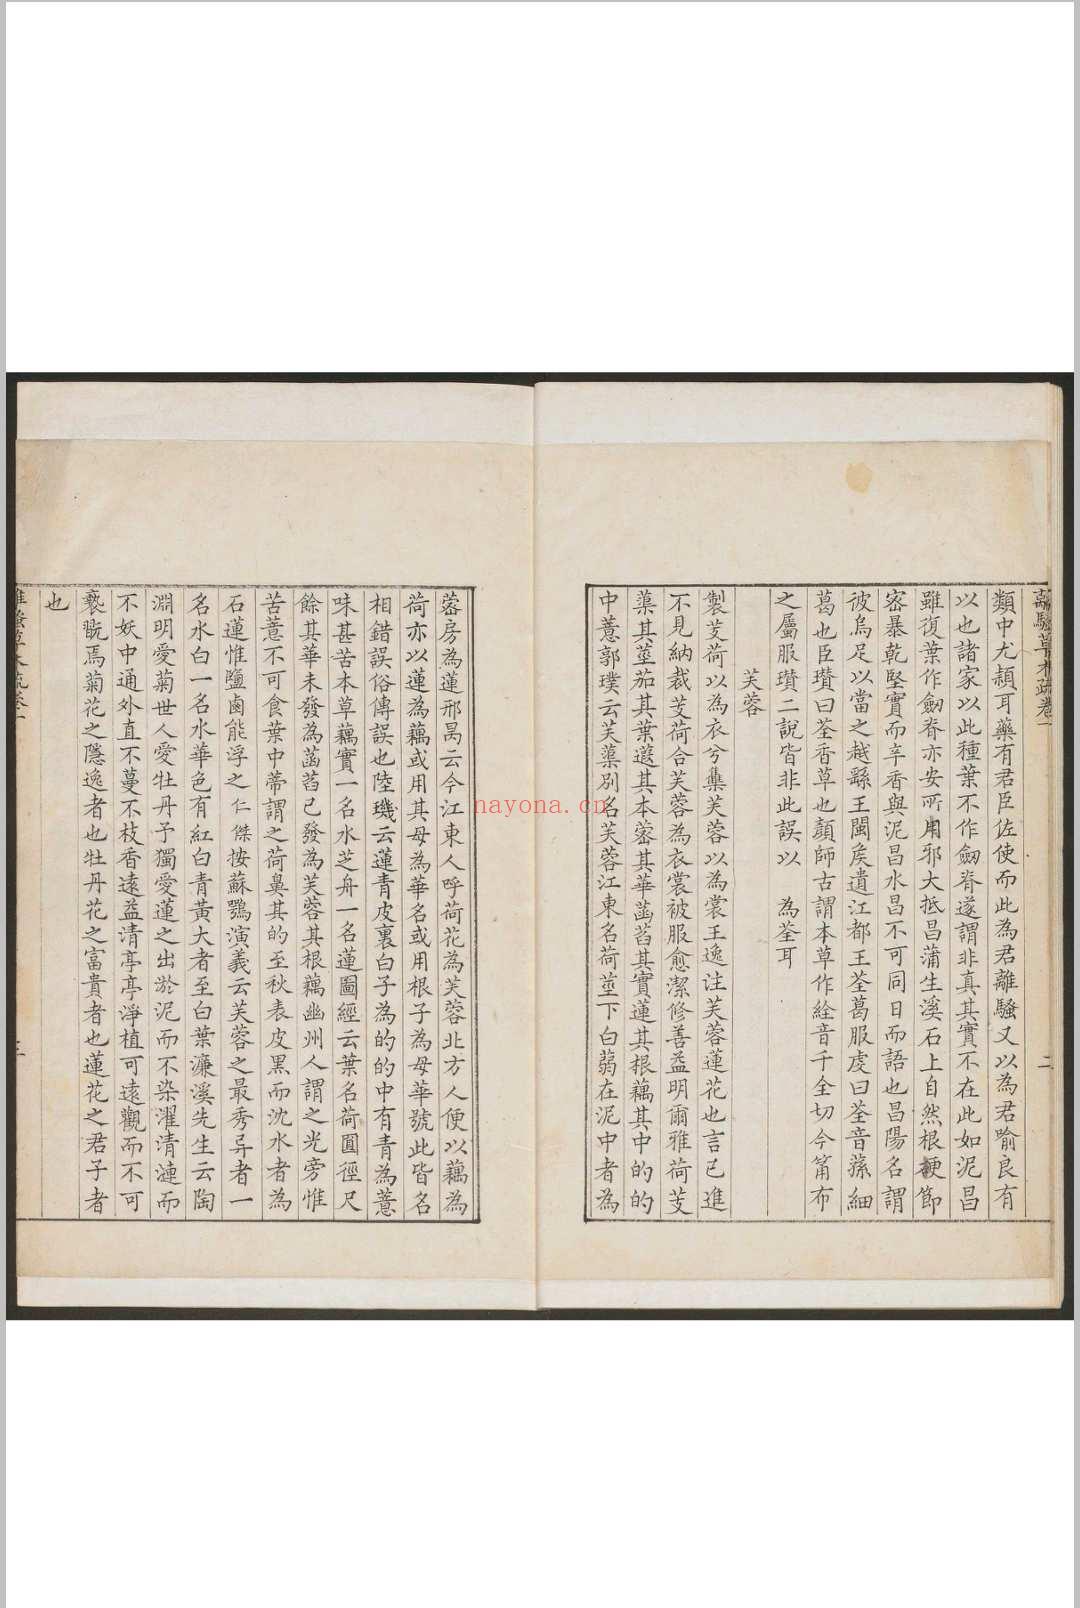 離騷草木疏卷一
二
類中尤頴耳藥有君臣佐使而此為君離騷又以為君喻良有
以也諸家以此種葉不作劒脊遂謂非真其實不在此如泥昌
雖復葉作劒脊亦安所用邪大抵昌蒲生溪石上自然根梗節
宻暴乾堅實而辛香與泥昌水昌不可同日而語也昌陽名謂
彼烏足以當之越繇王閩矦遺江都王荃葛服虔曰荃音蓀細
葛也臣瓚曰荃香草也顏師古謂本草作絟音千全切今筩布
之屬服瓚二說皆非此誤以 為荃耳
芙蓉
製芰荷以為衣兮集芙蓉以為裳王逸注芙蓉蓮花也言已進
不見納裁芰荷合芙蓉為衣裳被服愈潔修善益明爾雅荷芰
蕖其莖茄其葉蕸其本蔤其華菡萏其實蓮其根藕其中的的
中薏郭璞云芙蕖別名芙蓉江東名荷莖下白蒻在泥中者為
蔤房為蓮邢昺云今江東人呼荷花為芙蓉北方人便以藕為
荷亦以蓮為藕或用其母為華名或用根子為母華號此皆名
相錯誤俗傳誤也陸璣云蓮青皮裏白子為的的中有青為薏
味甚苦本草藕實一名水芝丹一名蓮圖經云葉名荷圓徑尺
餘其華未發為菡萏已發為芙蓉其根藕幽州人謂之光旁惟
苦薏不可食葉中蒂謂之荷鼻其的至秋表皮黑而沈水者為
石蓮惟鹽鹵能浮之仁傑按蘇鶚演義云芙蓉之最秀异者一
名水白一名水華色有紅白青黃大者至白葉濂溪先生云陶
淵明愛菊世人愛牡丹予獨愛蓮之出淤泥而不染濯清漣而
不妖中通外直不蔓不枝香遠益清亭亭淨植可遠觀而不可
褻翫焉菊花之隱逸者也牡丹花之富貴者也蓮花之君子者
也
離騷草木疏卷一
三
nayona.cn